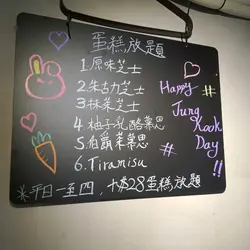 蛋糕放題
1.原味芝士
2.朱古力芝士
3.抹茶芝士
4.柚子乳酪慕思
5.伯爵茶慕思
6.Tiramisu
※平日一至四 十$28蛋糕放題
# Happy
Jung
Kook
# Day
!!